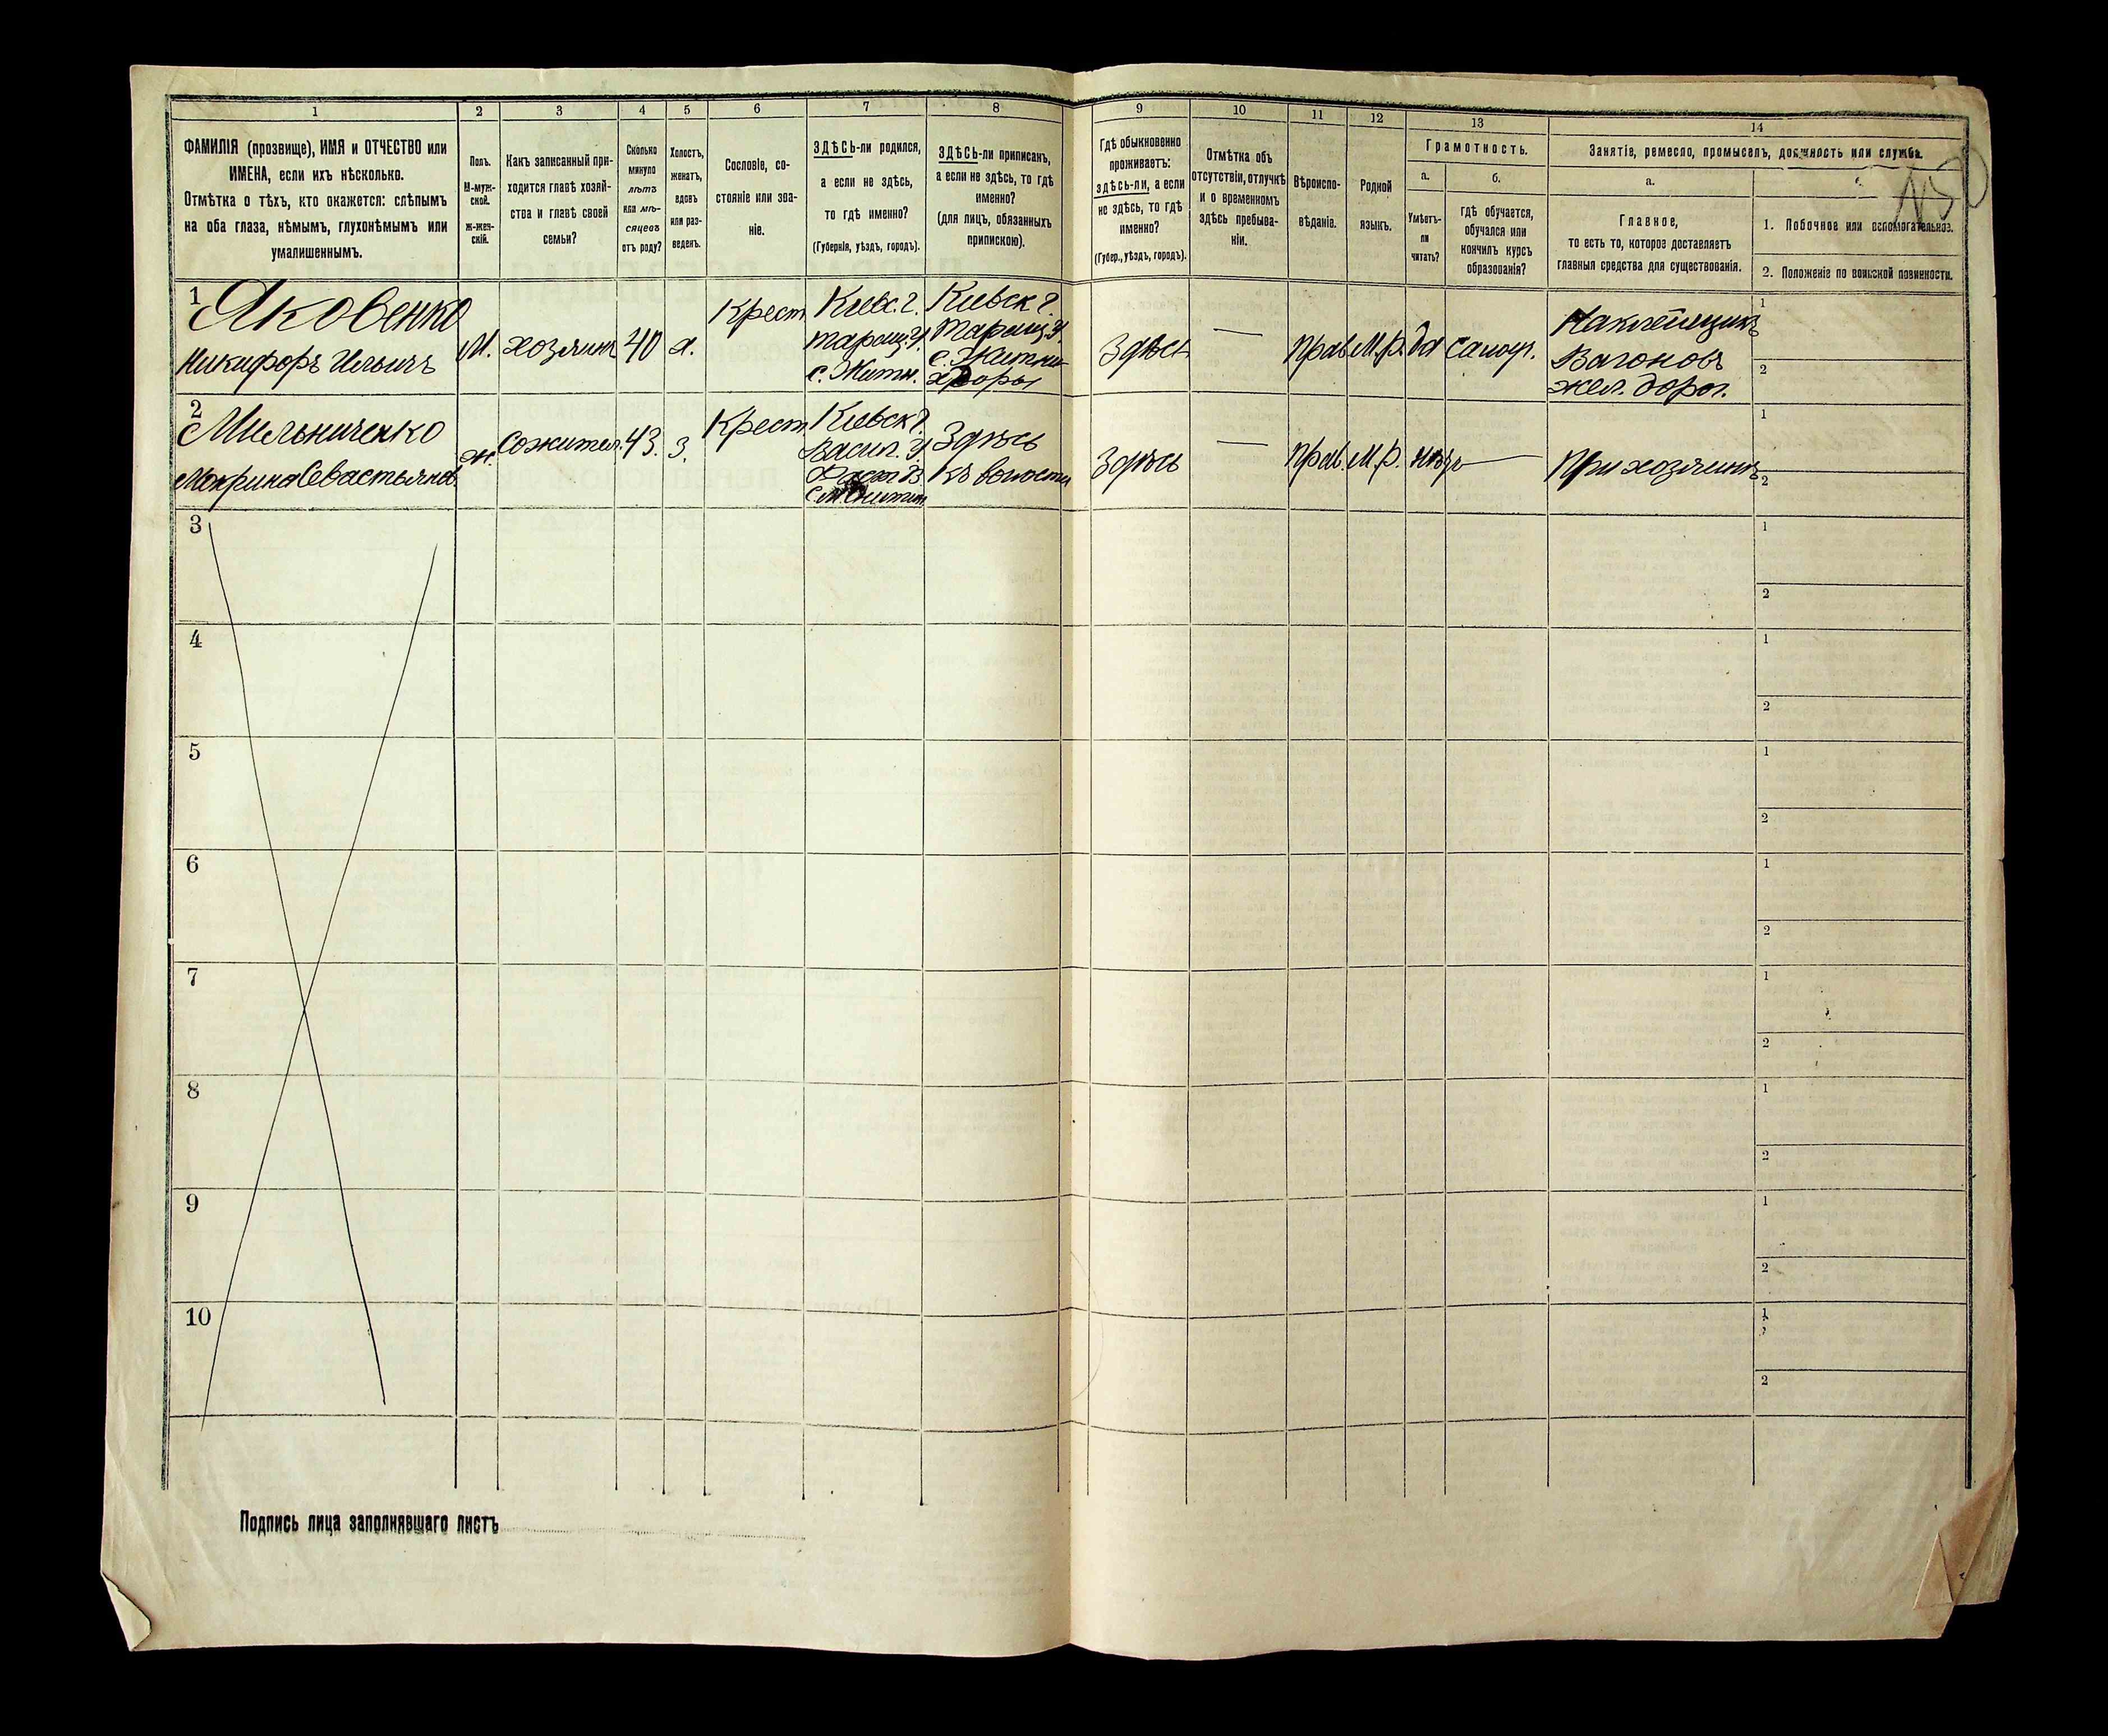 1
2
3
4
5
6
7
8
9
10
11
12
13
14
ФАМИЛІЯ (прозвище), ИМЯ и ОТЧЕСТВО или
ИМЕНА, если ихъ нѣсколько.
Отмѣтка о тѣхъ, кто окажется: слѣпымъ
на оба глаза, нѣмымъ, глухонѣмымъ или
умалишеннымъ.
Полъ.
М-муж-
ской.
Ж-жен-
скій.
Какъ записанный при-
ходится главѣ хозяй-
ства и главѣ своей
семьи?
Сколько
минуло
лѣтъ
или мѣ-
сяцевъ
отъ роду?
Холостъ,
женатъ,
вдовъ
или раз-
веденъ.
Сословіе, со-
стояніе или зва-
ніе.
ЗДѢСЬ-ли родился,
а если не здѣсь,
то гдѣ именно?
(Губернія, уѣздъ, городъ).
ЗДѢСЬ-ли приписанъ,
а если не здѣсь, то гдѣ
именно?
(для лицъ, обязанныхъ
припискою).
Гдѣ обыкновенно
проживаетъ:
здѣсь-ли, а если
не здѣсь, то гдѣ
именно?
(Губер., уѣздъ, городъ).
Отмѣтка объ
отсутствіи, отлучкѣ
и о временномъ
здѣсь пребыва-
ніи.
Вѣроиспо-
вѣданіе.
Родной
языкъ.
Грамотность.
а.
Умѣетъ-
ли
читать?
б.
гдѣ обучается,
обучался или
кончилъ курсъ
образованія?
Занятіе, ремесло, промыселъ, должность или служба.
а.
Главное,
то есть то, которое доставляетъ
главныя средства для существованія.
1. Побочное или вспомогательное.
2. Положеніе по воинской повинности.
1
Яковенко
Никифоръ Ильичъ
М.
хозяинъ
40
х.
Крест.
Кіевс. г.
таращ. у.
с. Житн.
Кіевск г.
Таращ. у.
с. Житни
хгоры
Здѣсь
—
Прав.
М.р.
да
самоуч.
Наклейщикъ
Вагоновъ
жел. дорог.
1
2
2
Мельниченко
Мокрина Севастьянов.
ж.
Сожител.
43.
з.
Крест.
Кіевск г.
Васил. у.
Здѣсь
къ волости
Здѣсь
—
Прав.
М.р.
нѣтъ
—
При хозяинѣ
1
2
3
1
2
4
1
2
5
1
2
6
1
2
7
1
2
8
1
2
9
1
2
10
1
2
Подпись лица заполнявшаго листъ